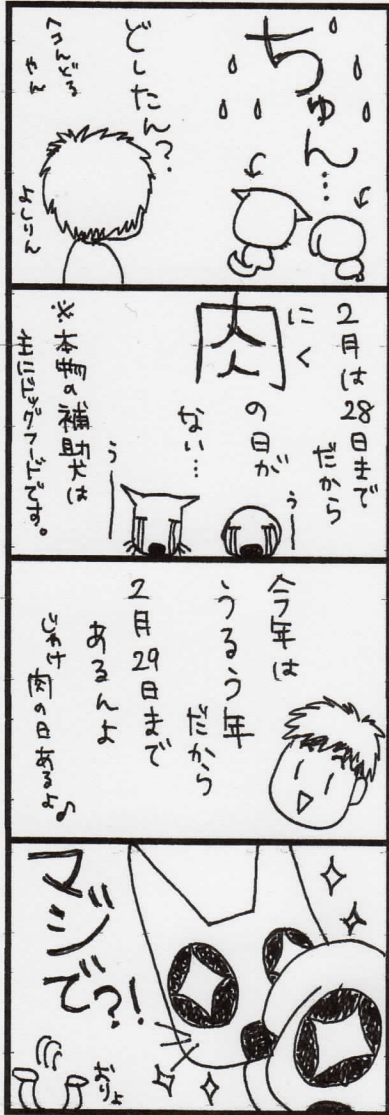 ちゅん…
どしたん?
へこんどる
やん
よしりん
2月は28日まで
だから
にく
肉の日が
ない…
う
う
※本物の補助犬は
主にドッグフードです。
今年は
うるう年
だから
2月29日まで
あるんよ
じゃけ
肉の日あるよ♪
マジで?!
おりょ